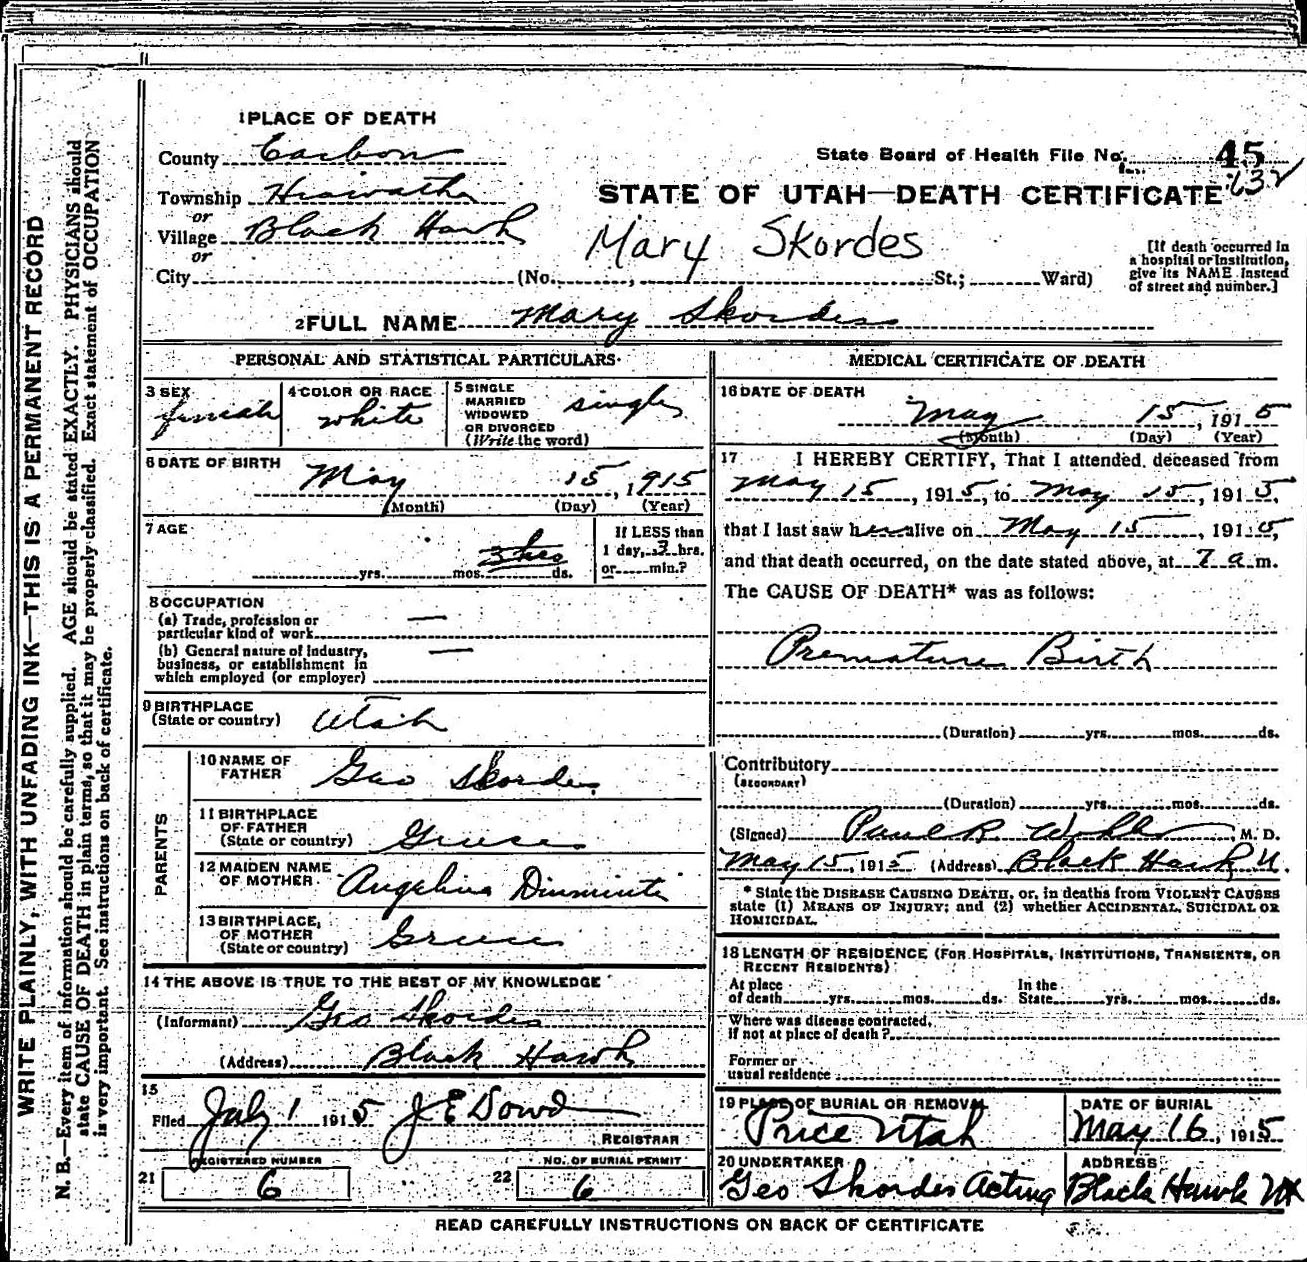 1 PLACE OF DEATH
County Carbon
State Board of Health File No. 45
Township Hiawatha
STATE OF UTAH—DEATH CERTIFICATE 132
or
Village Black Hawk
Mary Skordes
or
City (No. , St.; Ward)
[If death occurred in
a hospital or institution,
give its NAME instead
of street and number.]
2 FULL NAME Mary Skordes
PERSONAL AND STATISTICAL PARTICULARS
3 SEX
female
4 COLOR OR RACE
white
5 SINGLE
MARRIED
WIDOWED
OR DIVORCED
(Write the word)
single
6 DATE OF BIRTH
May 15, 1915
(Month) (Day) (Year)
7 AGE
3 hrs
yrs. mos. ds.
If LESS than
1 day, 3 hrs.
or min.?
8 OCCUPATION
(a) Trade, profession or
particular kind of work —
(b) General nature of industry,
business, or establishment in
which employed (or employer) —
9 BIRTHPLACE
(State or country) Utah
PARENTS
10 NAME OF
FATHER Geo Skordes
11 BIRTHPLACE
OF FATHER
(State or country) Greece
12 MAIDEN NAME
OF MOTHER Angelina
13 BIRTHPLACE,
OF MOTHER
(State or country) Greece
14 THE ABOVE IS TRUE TO THE BEST OF MY KNOWLEDGE
(Informant) Geo Skordes
(Address) Black Hawk
15
Filed July 1 1915 J E Dowd
REGISTRAR
REGISTERED NUMBER
21 6
NO. OF BURIAL PERMIT
22 6
MEDICAL CERTIFICATE OF DEATH
16 DATE OF DEATH
May 15, 1915
(Month) (Day) (Year)
17 I HEREBY CERTIFY, That I attended deceased from
May 15, 1915, to May 15, 1915,
that I last saw her alive on May 15, 1915,
and that death occurred, on the date stated above, at 7 a m.
The CAUSE OF DEATH* was as follows:
Premature Birth
(Duration) yrs. mos. ds.
Contributory
(SECONDARY)
(Duration) yrs. mos. ds.
(Signed) Paul R , M. D.
May 15, 1915 (Address) Black Hawk, U.
* State the DISEASE CAUSING DEATH, or, in deaths from VIOLENT CAUSES
state (1) MEANS OF INJURY; and (2) whether ACCIDENTAL, SUICIDAL OR
HOMICIDAL.
18 LENGTH OF RESIDENCE (FOR HOSPITALS, INSTITUTIONS, TRANSIENTS, OR
RECENT RESIDENTS)
At place
of death yrs. mos. ds.
In the
State yrs. mos. ds.
Where was disease contracted,
if not at place of death?
Former or
usual residence
19 PLACE OF BURIAL OR REMOVAL
Price Utah
DATE OF BURIAL
May 16, 1915
20 UNDERTAKER
Geo Skordes Acting
ADDRESS
Black Hawk Ut
READ CAREFULLY INSTRUCTIONS ON BACK OF CERTIFICATE
WRITE PLAINLY, WITH UNFADING INK—THIS IS A PERMANENT RECORD
N. B.—Every item of information should be carefully supplied. AGE should be stated EXACTLY. PHYSICIANS should
state CAUSE OF DEATH in plain terms, so that it may be properly classified. Exact statement of OCCUPATION
is very important. See instructions on back of certificate.